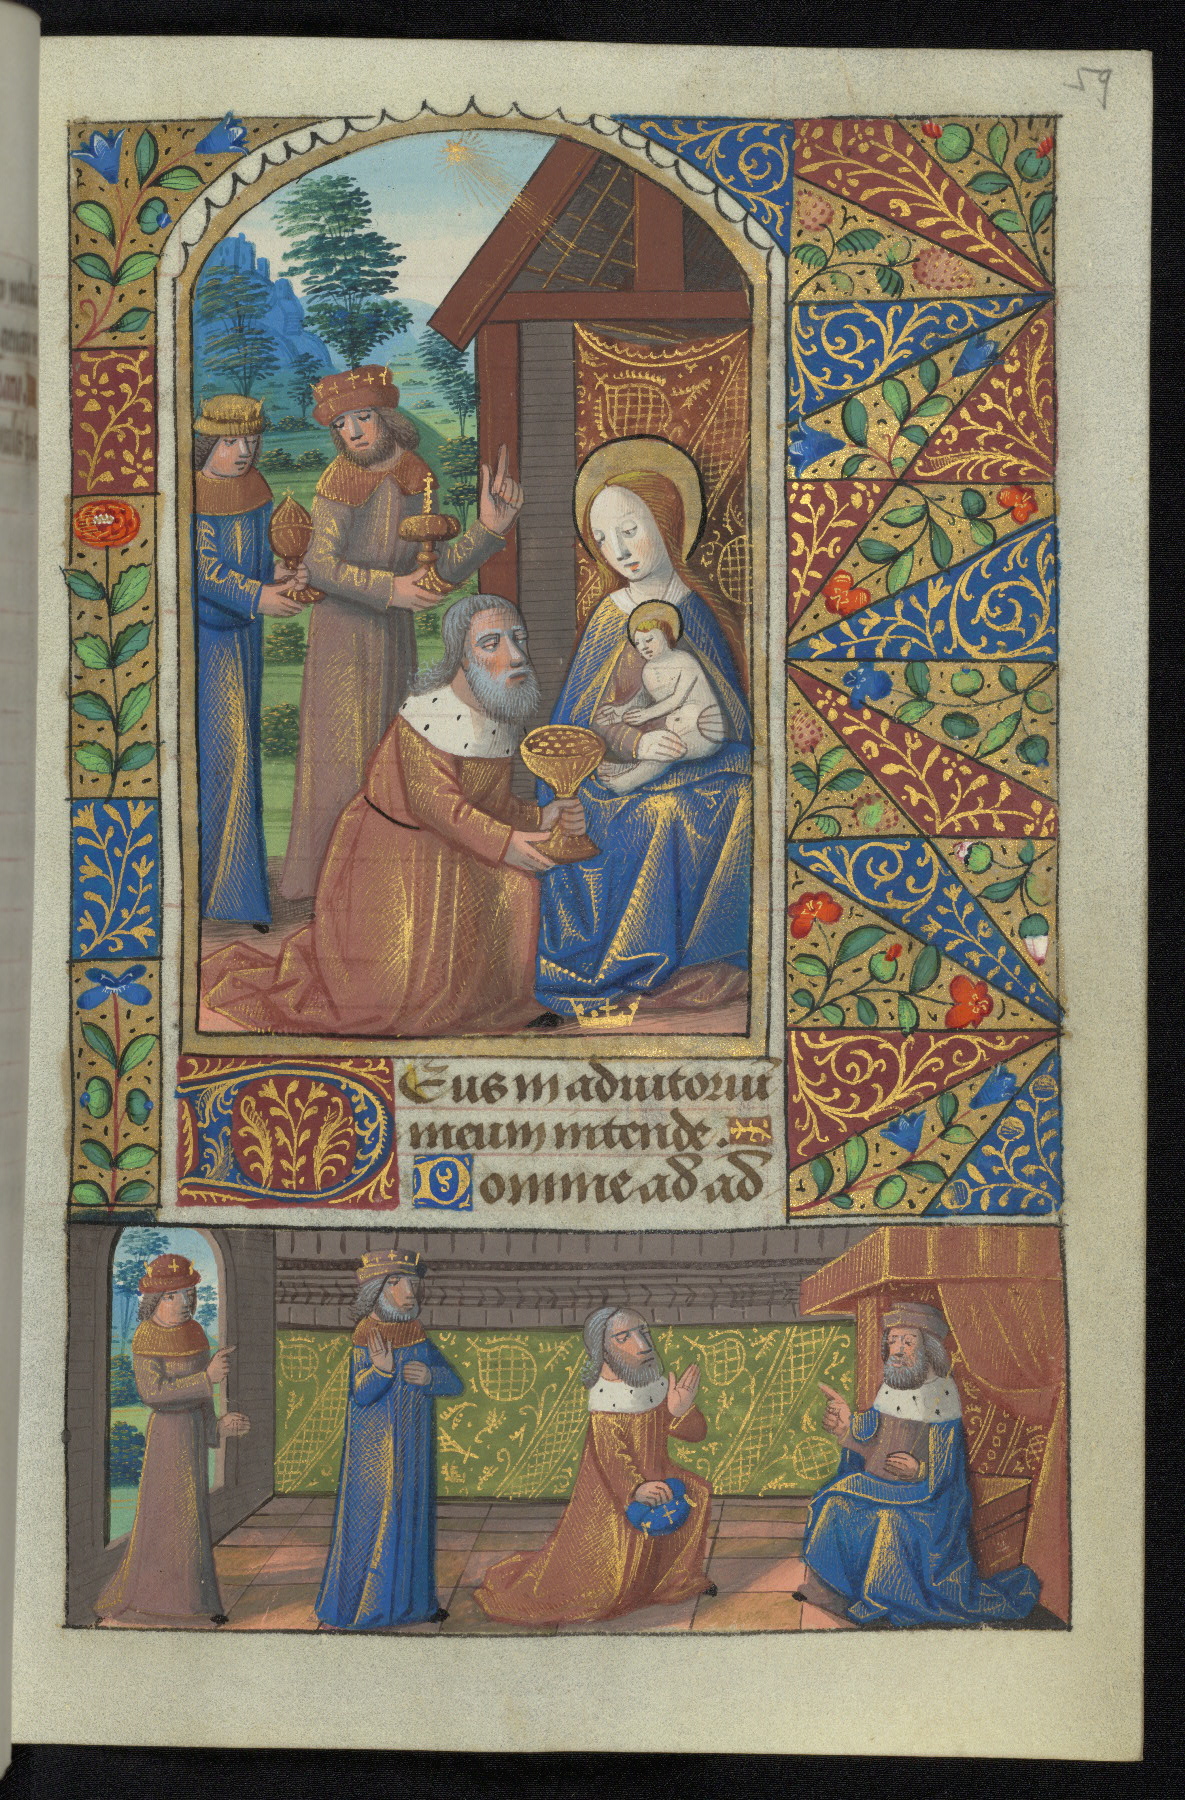 59
Deus in adiutoriũ
meum intende.
Domine ad ad